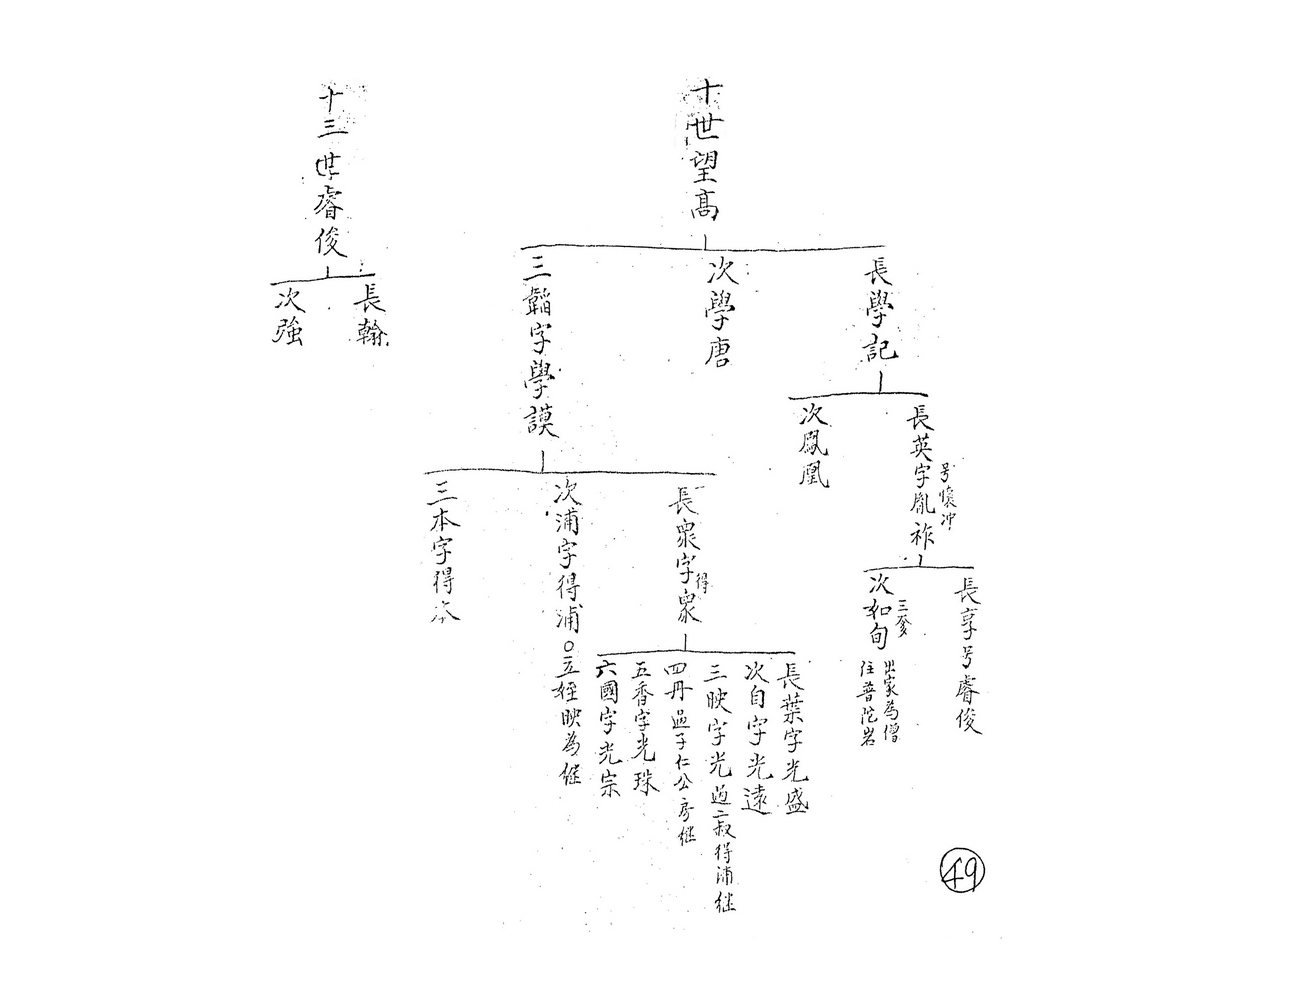 十世望高
長學記
次學唐
三韜字學謨
長英字胤祚
号懷冲
次鳳凰
長享号睿俊
次和旬
三爹
出家為僧
住普陀岩
長眾字得眾
次浦字得浦○立姪映為继
三本字得本
長葉字光盛
次自字光遠
三映字光過二叔得浦继
四丹過子仁公房继
五香字光珠
六國字光宗
十三世睿俊
長翰
次強
49